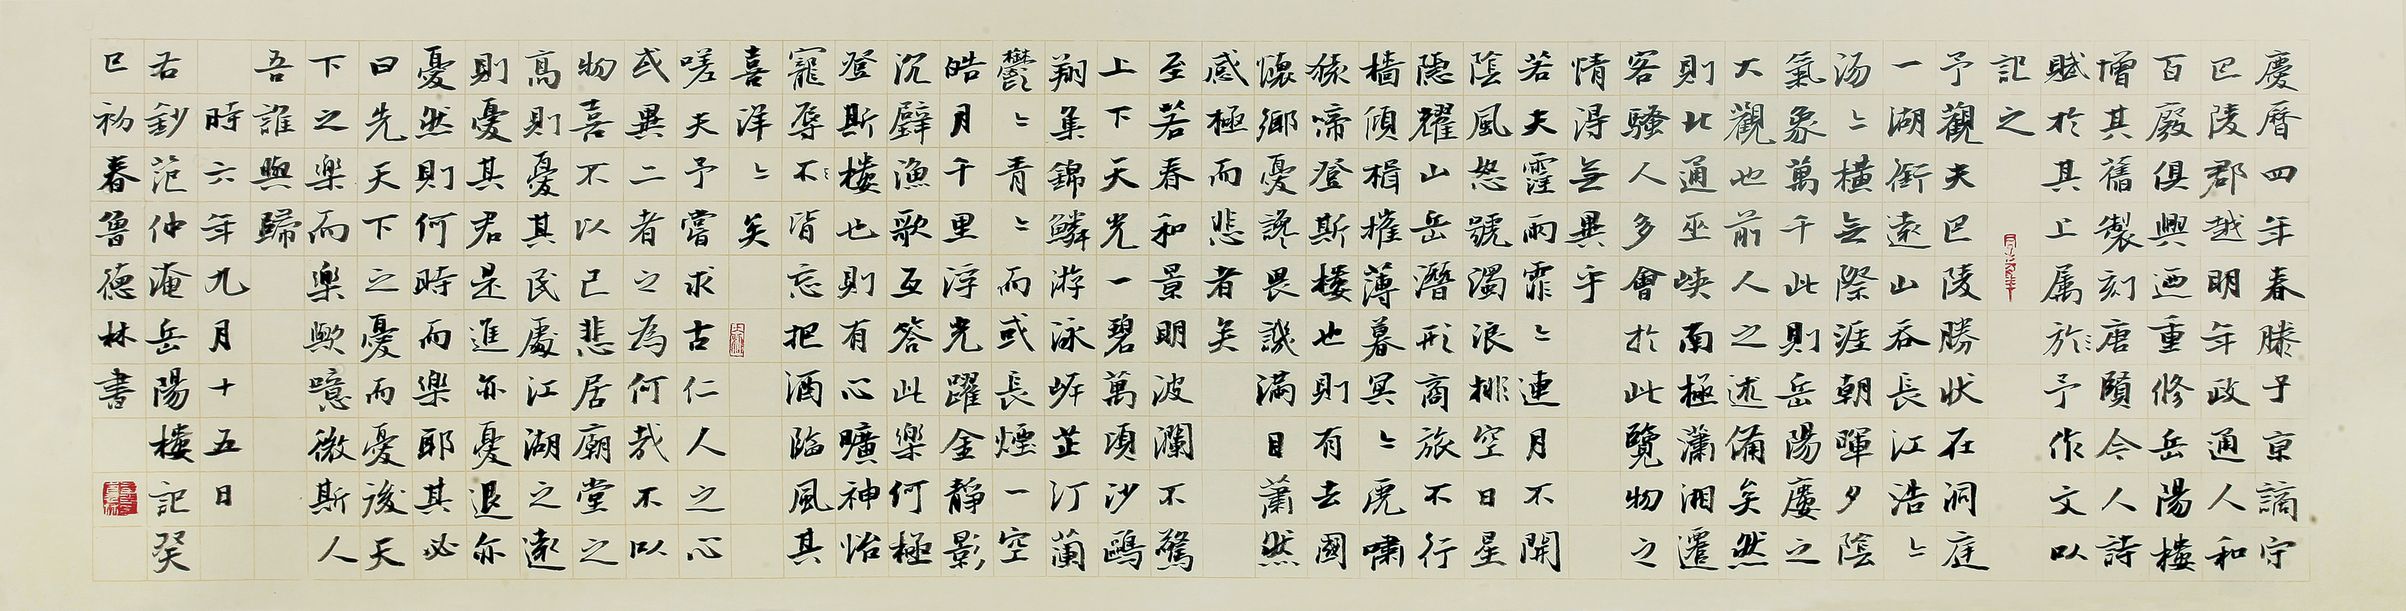 慶曆四年春滕子京謫守
巴陵郡越明年政通人和
百廢俱興迺重修岳陽樓
增其舊製刻唐賢今人詩
賦於其上属於予作文以
記之
予觀夫巴陵勝状在洞庭
一湖銜遠山吞長江浩〻
汤〻橫無際涯朝暉夕陰
氣象萬千此則岳陽廔之
大觀也前人之述備矣然
則北通巫峡南極瀟湘遷
客騷人多會於此覽物之
情得無異乎
若夫霪雨霏〻連月不開
陰風怒號濁浪排空日星
隱耀山岳潛形商旅不行
檣傾楫摧薄暮冥〻虎嘯
猿啼登斯樓也則有去國
懷鄉憂讒畏譏滿目蕭然
感極而悲者矣
至若春和景明波瀾不驚
上下天光一碧萬頃沙鷗
翔集錦鱗游泳岸芷汀蘭
鬱〻青〻而或長煙一空
皓月千里浮光躍金靜影
沉璧漁歌互答此樂何極
登斯樓也則有心曠神怡
寵辱不皆忘把酒臨風其
喜洋〻矣
嗟夫予嘗求古仁人之心
或異二者之為何哉不以
物喜不以己悲居廟堂之
高則憂其民處江湖之遠
則憂其君是進亦憂退亦
憂然則何時而樂耶其必
曰先天下之憂而憂後天
下之樂而樂歟噫微斯人
吾誰與歸
時六年九月十五日
右鈔范仲淹岳陽樓記癸
巳初春魯德林書